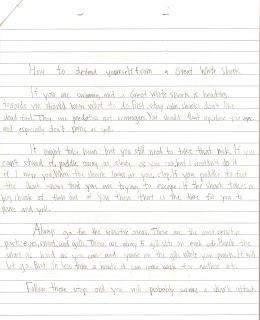 How to defend yourself from a Great White Shark
If you are swimming and a Great White Shark is heading
towards you should know what to do. First, stay calm, sharks don't like
dead food. They are predators not scavengers. You should float up, close your eyes
and especially don't panic or yell.
It might take hours but you still need to take that risk. If you
can't stand it, paddle away as slowly as you can, but I wouldn't do it
if I were you. When the shark looks at you, stop. If you paddle too fast
the shark knows that you are trying to escape. If the shark takes a
big chunk of then out of you then that is the time for you to
panic and yell.
Always go for the sensitive areas. These are the most sensitive
parts: eyes, snout, and gills. There are about 5 gill slits on each side. Punch the
snout as hard as you can and yank on the gills while you punch. It will
let go. But in less than a minute it can come back for another
Follow these steps and you will probably survive a shark attack.